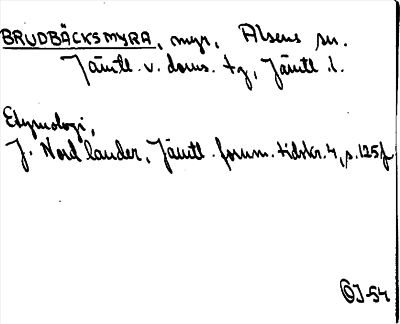 BRUDBÄCKSMYRA, myr, Alsens sn.
Jämtl. v. doms. tg, Jämtl. l.
Etymologi,
J. Nordlander, Jämtl. fornm. tidskr. 4, s. 125f
ÖJ-54